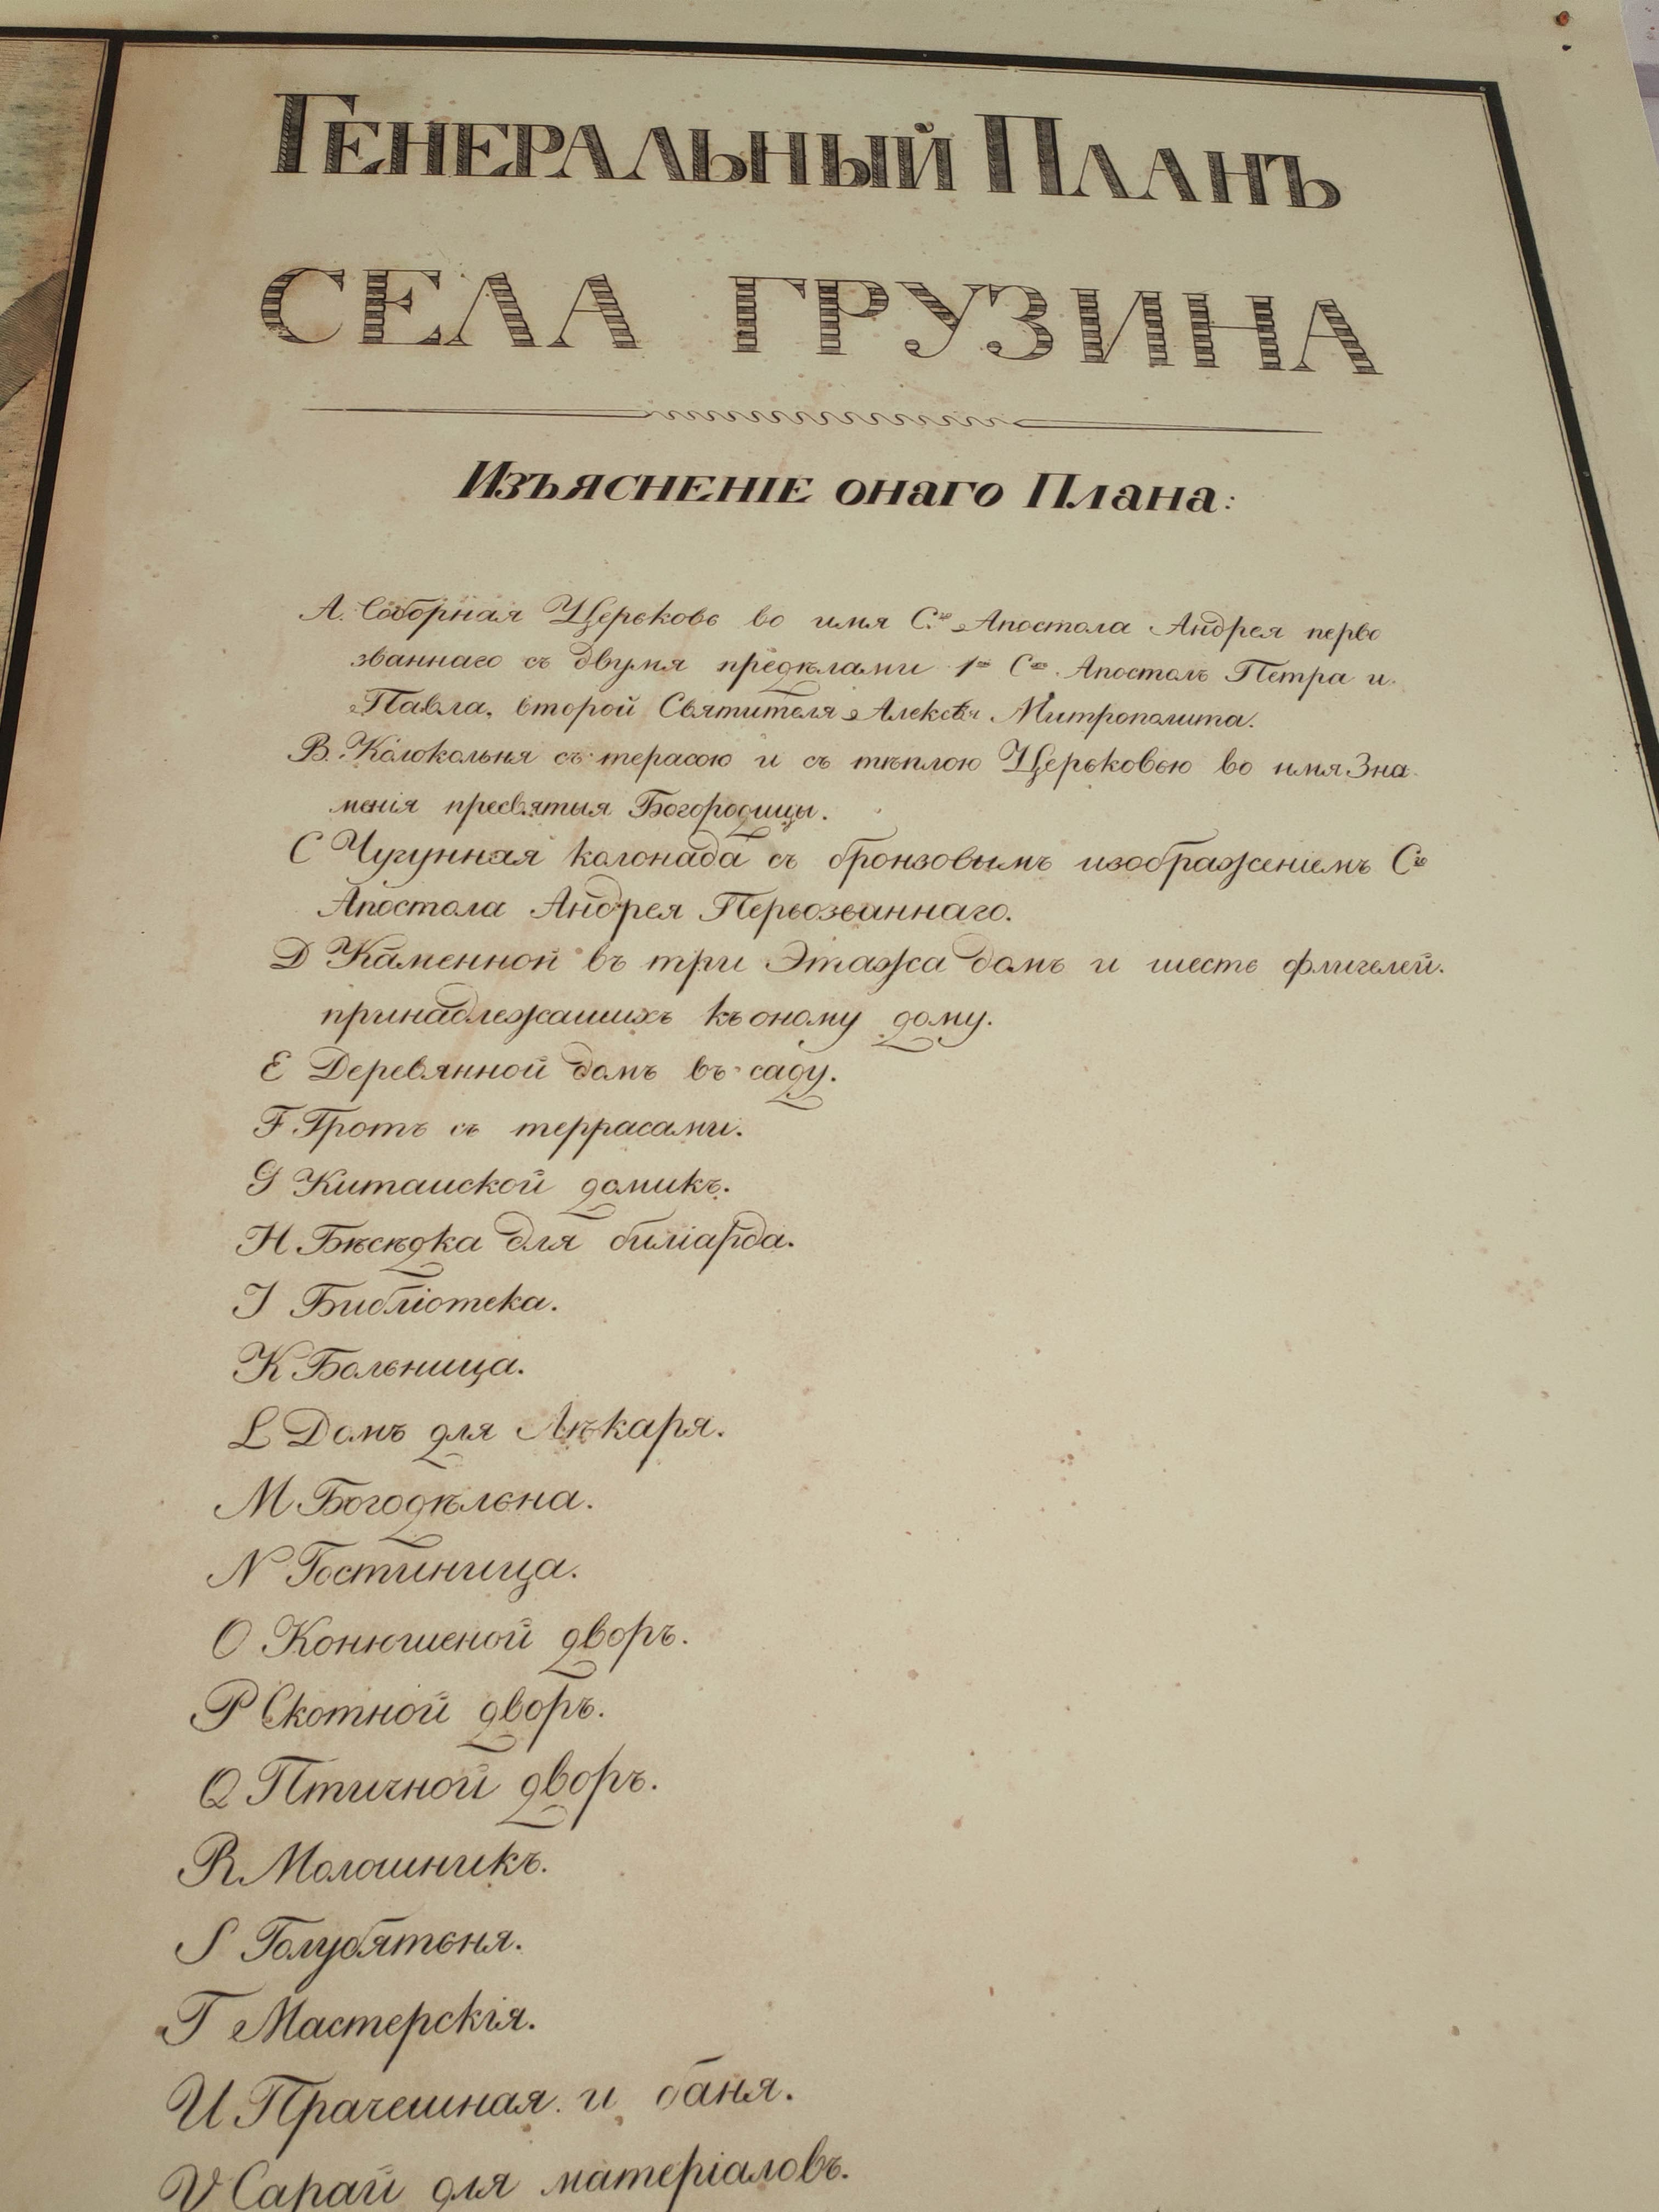 Генеральный Планъ
СЕЛА ГРУЗИНА
Изъясненіе онаго Плана:
А. Соборная Церьковь во имя С.го Апостола Андрея перво
званнаго съ двумя предѣлами 1й С.хъ Апостолъ Петра и
Павла, второй Святителя Алексѣя Митрополита.
B. Колокольня съ терасою и съ тѣплою Церьковью во имя Зна
менія пресвятыя Богородицы.
C Чугунная колонада съ бронзовымъ изображеніемъ С.го
Апостола Андрея Первозваннаго.
D Каменной въ три Этажа домъ и шесть флигелей.
принадлежащихъ къ оному дому.
E Деревянной домъ въ саду.
F Гротъ съ террасами.
G Китаиской домикъ.
H Бѣсѣдка для биліарда.
I Библіотека.
K Больница.
L Домъ для Лѣкаря.
M Богодѣльна.
N Гостиница.
O Конюшеной дворъ.
P Скотной дворъ.
Q Птичной дворъ.
R Молошникъ.
S Голубятьня.
T Мастерскія.
U Прачешная и баня.
V Сарай для матеріаловъ.